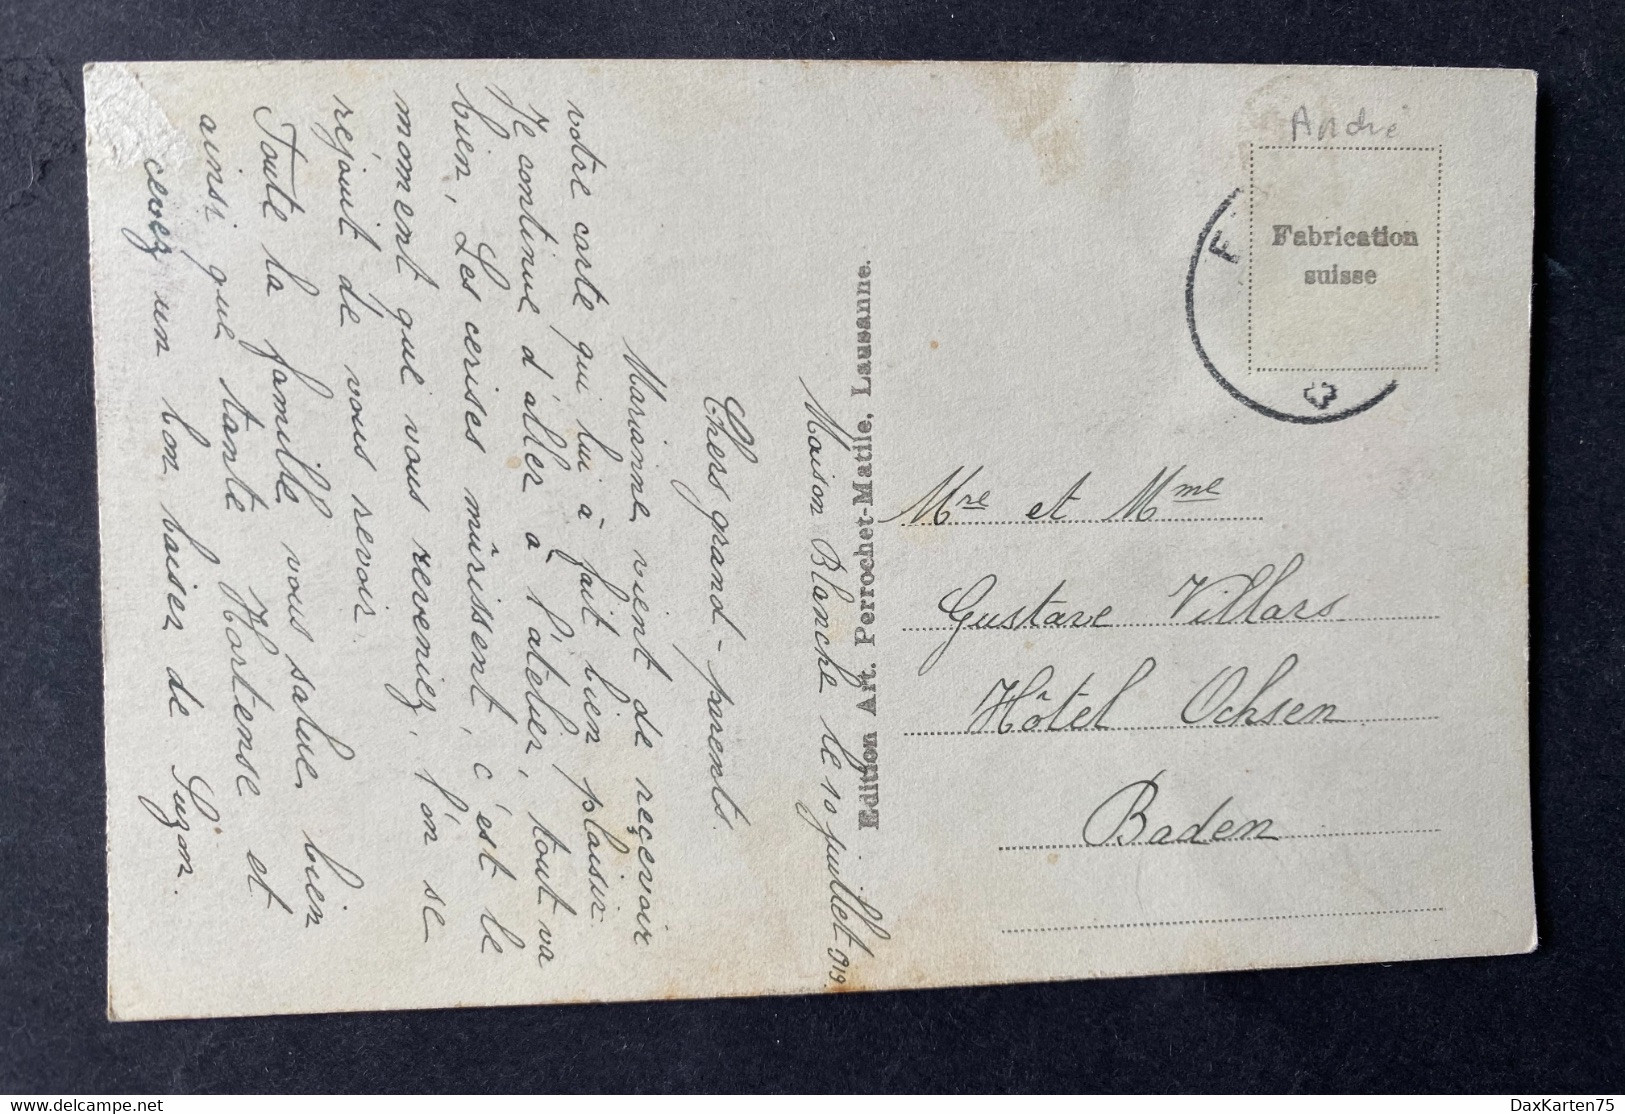 Maison Blanche le 10 juillet 919.
Chers grand-parents.
Marianne vient de reçevoir
votre carte qui lui à fait bien plaisir.
Je continue d'aller à l'atelier, tout va
bien, Les cerises mûrissent, c'est le
moment que vous reveniez, l'on se
réjouit de vous revoir.
Toute la famille vous salue bien
ainsi que tante Hortense et
cevez un bon baiser de Suzon.
Edition Art. Perrochet-Matile, Lausanne.
André
Fabrication
suisse
F
Mre et Mme
Gustave Villars
Hôtel Ochsen
Baden
www.delcampe.net
DaxKarten75